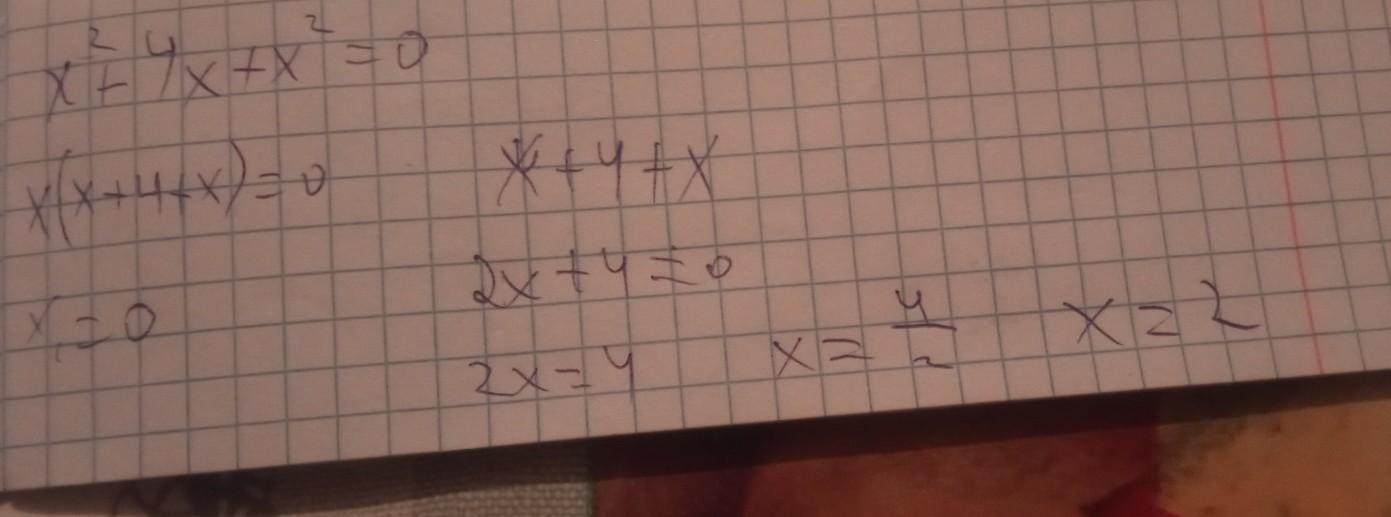 x² + 4x + x² = 0
x(x+4+x) = 0
x₁ = 0
x + 4 + x
2x + 4 = 0
2x = 4
x = 4/2
x = 2